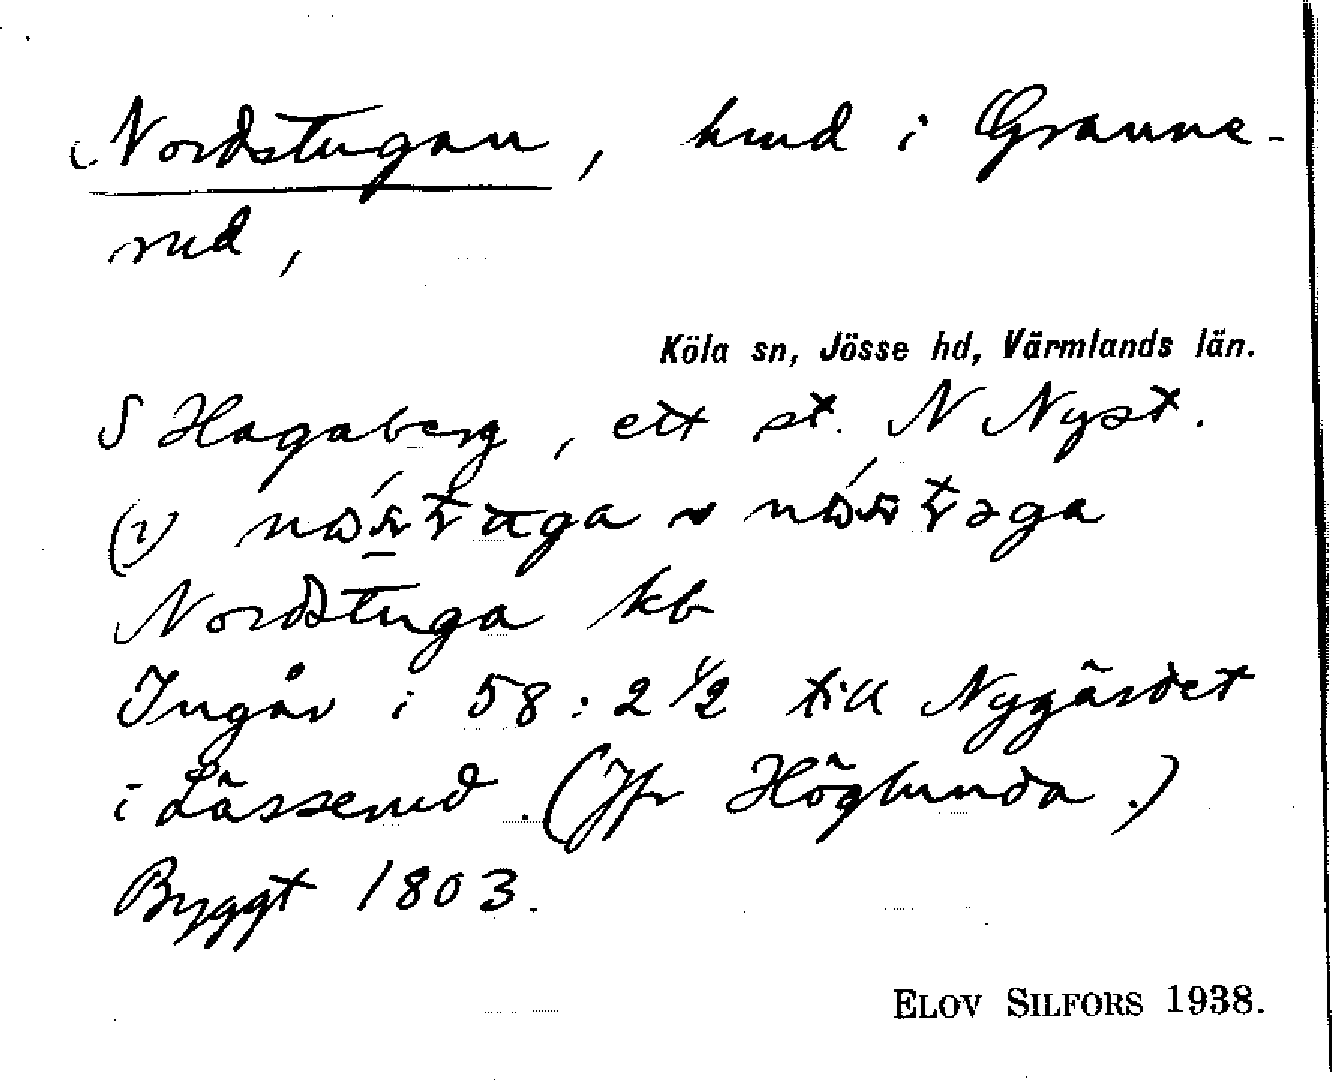 Nordstugan, hmd i Granne-
rud,
Köla sn, Jösse hd, Värmlands län.
S Hagaberg, ett st. N Nyst.
(i)
Nordstuga kb
Ingår i 58:2 1/2 till Nygärdet
i Lässerud. (Jfr Höglunda.)
Byggt 1803.
ELOV SILFORS 1938.